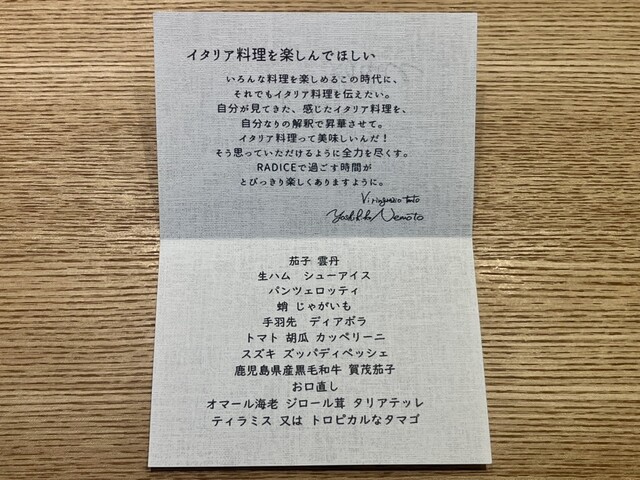 イタリア料理を楽しんでほしい
いろんな料理を楽しめるこの時代に、
それでもイタリア料理を伝えたい。
自分が見てきた、感じたイタリア料理を、
自分なりの解釈で昇華させて。
イタリア料理って美味しいんだ！
そう思っていただけるように全力を尽くす。
RADICEで過ごす時間が
とびっきり楽しくありますように。
Vi ringrazio tanto
Yoshihiko Nemoto
茄子 雲丹
生ハム シューアイス
パンツェロッティ
蛸 じゃがいも
手羽先 ディアボラ
トマト 胡瓜 カッペリーニ
スズキ ズッパディペッシェ
鹿児島県産黒毛和牛 賀茂茄子
お口直し
オマール海老 ジロール茸 タリアテッレ
ティラミス 又は トロピカルなタマゴ